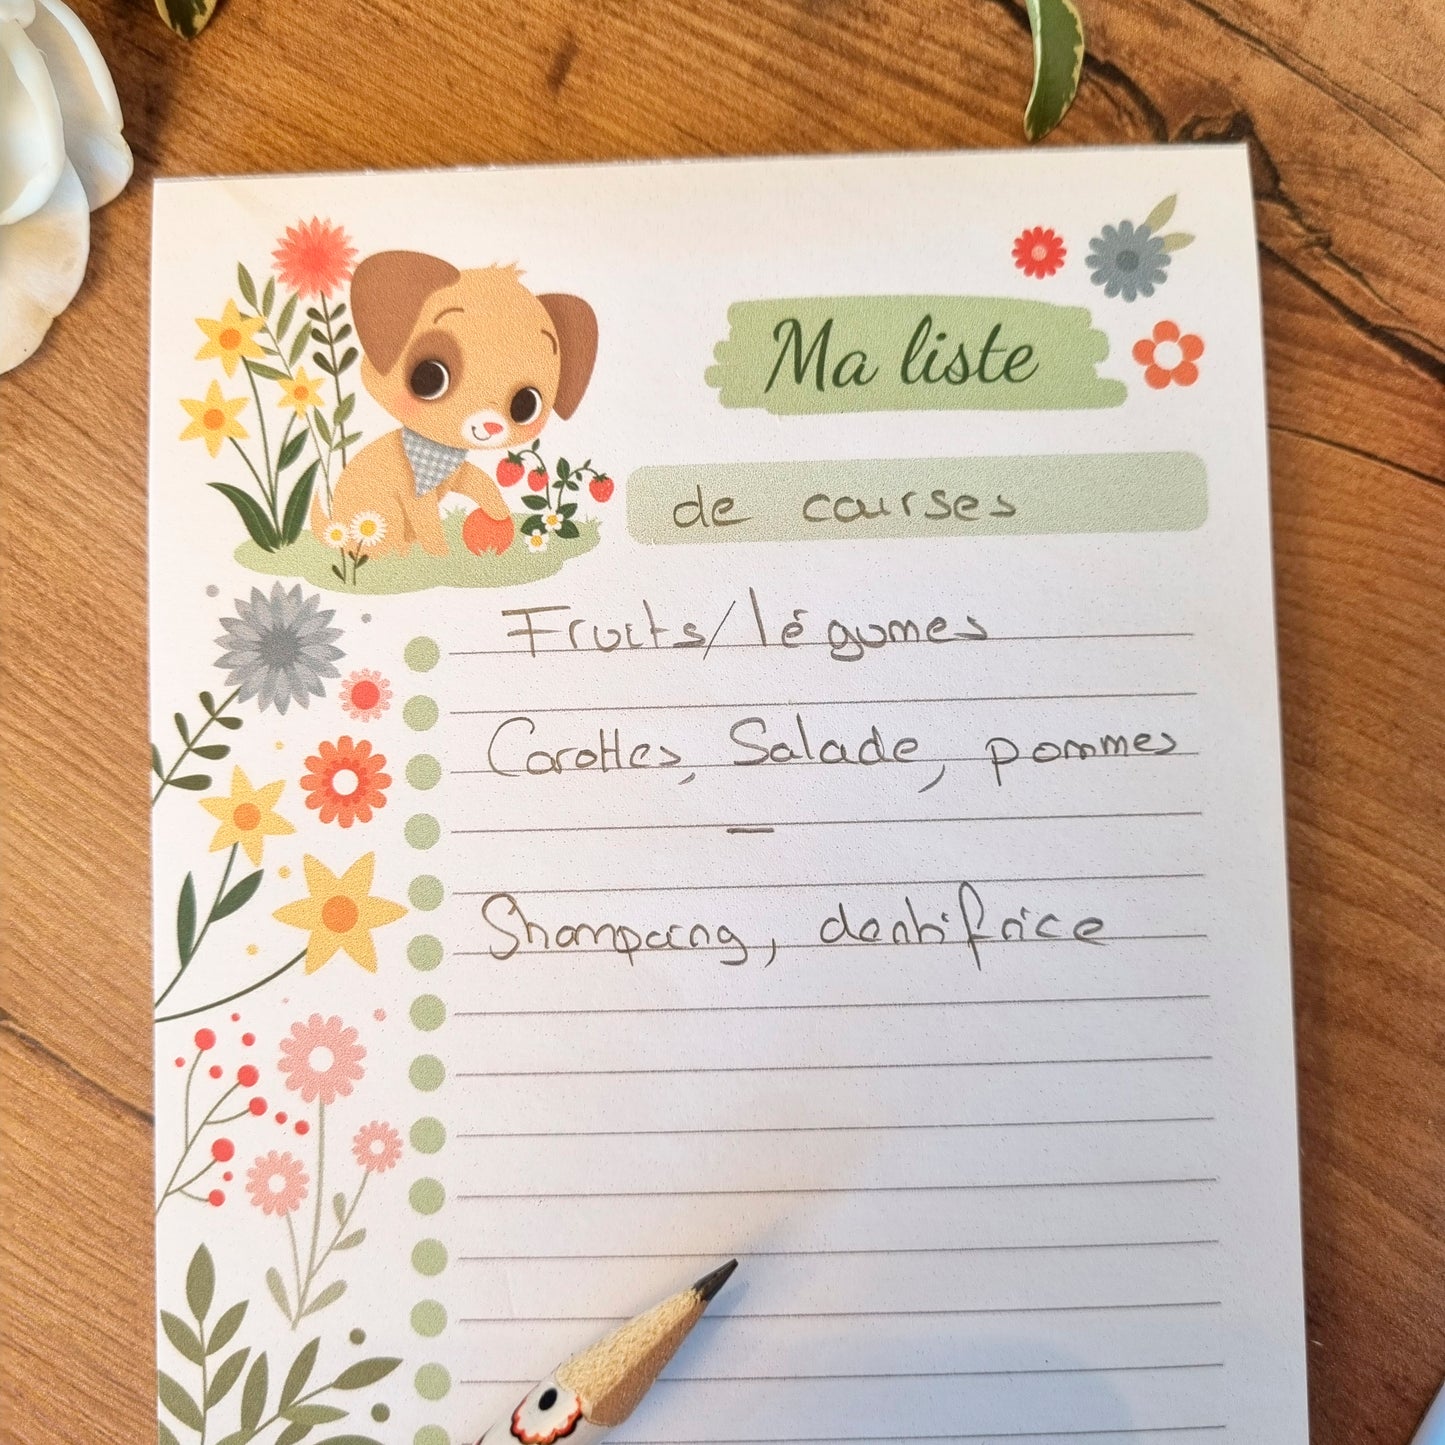 Ma liste
de courses
Fruits/légumes
Carottes, Salade, pommes
—
Shampoing, dentifrice